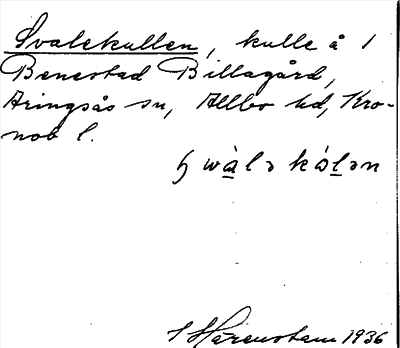 Svalekullen, kulle å 1
Benestad Billagård,
Aringsås sn, Allbo hd, Kro-
nob l.
wàlə kólən
S Härenstam 1936